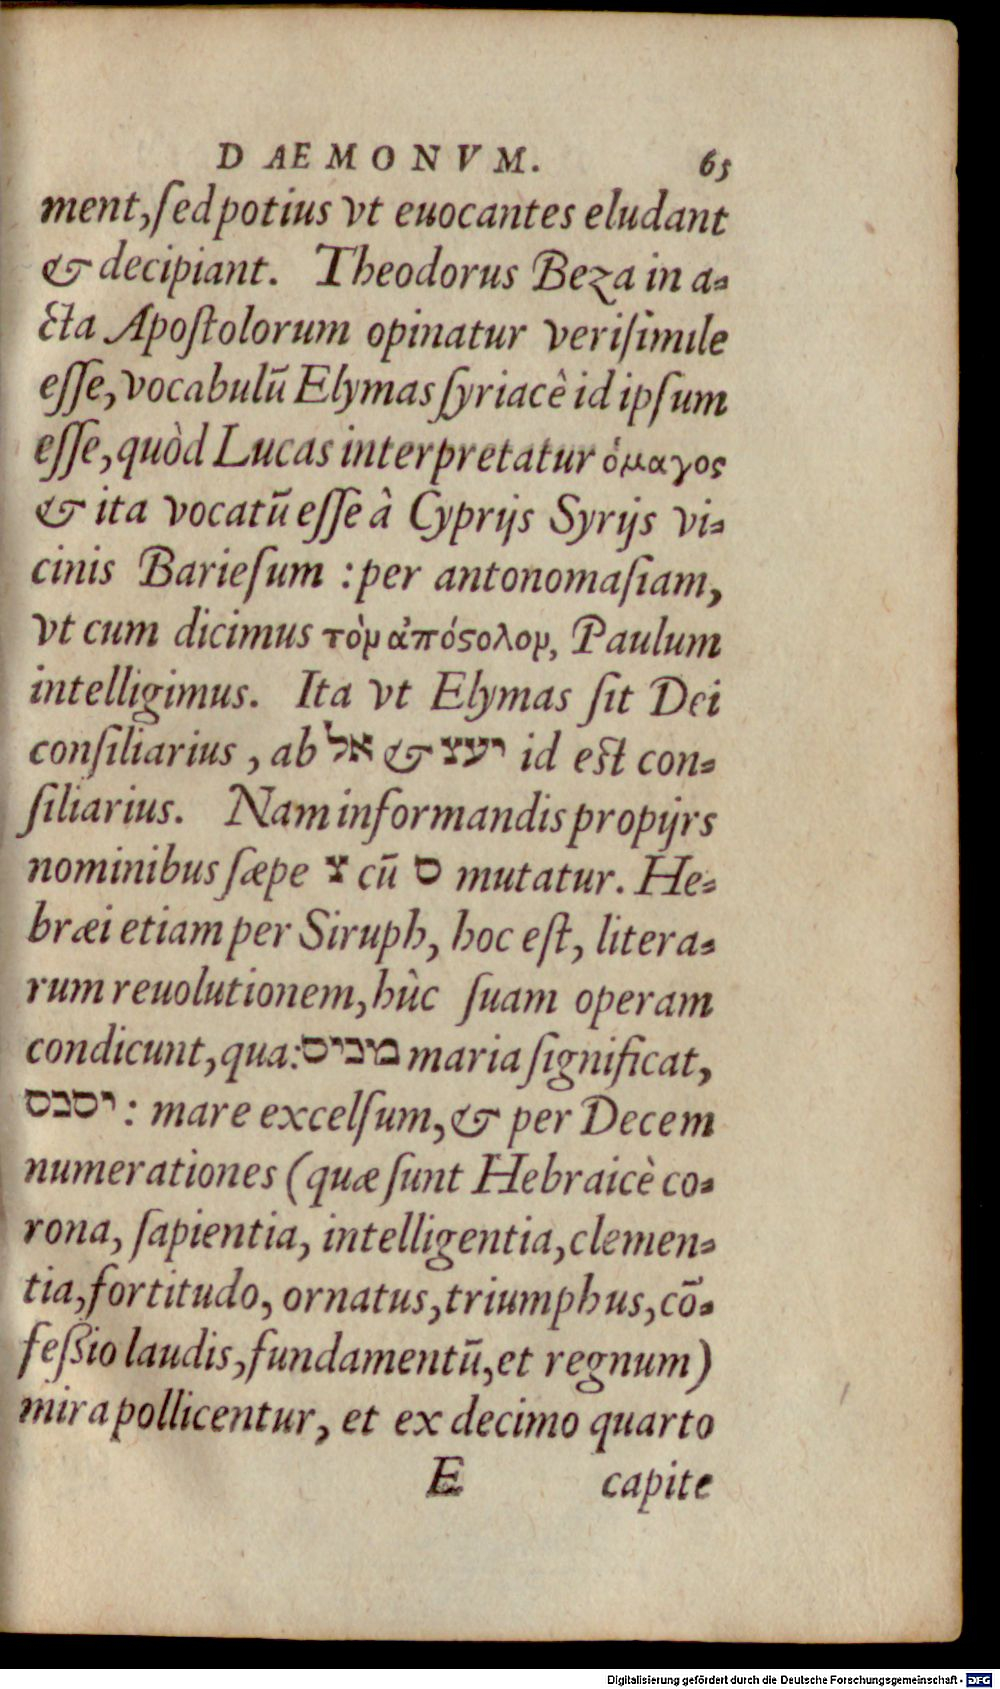 DAEMONVM. 65
ment, ſed potius vt euocantes eludant
& decipiant. Theodorus Beza in a-
cta Apoſtolorum opinatur veriſimile
eſſe, vocabulũ Elymas ſyriacê id ipſum
eſſe, quòd Lucas interpretatur ὁμαγος
& ita vocatũ eſſe â Cyprijs Syrijs vi-
cinis Barieſum : per antonomaſiam,
vt cum dicimus τὸν ἀπόςολον, Paulum
intelligimus. Ita vt Elymas ſit Dei
conſiliarius, ab אל & יעצ id eſt con-
ſiliarius. Nam informandis propijrs
nominibus ſæpe צ cũ ס mutatur. He-
bræi etiam per Siruph, hoc eſt, litera-
rum reuolutionem, hûc ſuam operam
condicunt, qua: מביס maria ſignificat,
יסבס : mare excelſum, & per Decem
numerationes (quæ ſunt Hebraicè co-
rona, ſapientia, intelligentia, clemen-
tia, fortitudo, ornatus, triumphus, cõ-
feßio laudis, fundamentũ, et regnum)
mira pollicentur, et ex decimo quarto
E capite
Digitalisierung gefördert durch die Deutsche Forschungsgemeinschaft - DFG